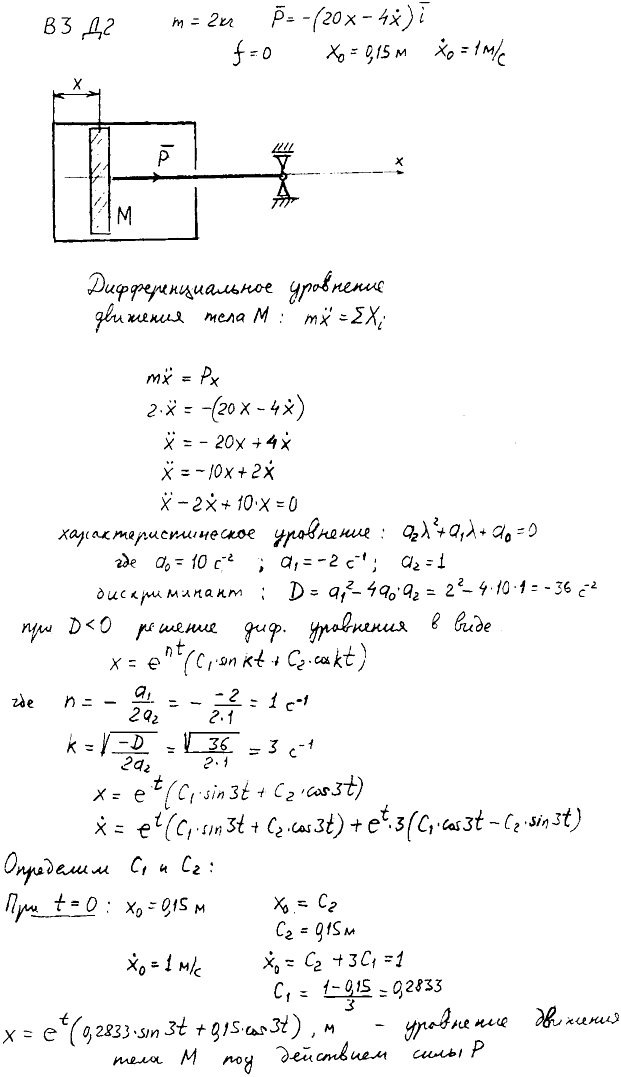 В3 Д2 m = 2кг P̄ = -(20x - 4ẋ) ī
f = 0 x₀ = 0,15 м ẋ₀ = 1 м/с
x
P̄
x
M
Дифференциальное уровнение
движения тела М : mẍ = ΣXᵢ
mẍ = Pₓ
2·ẍ = -(20x - 4ẋ)
ẍ = - 20x + 4ẋ
ẍ = -10x + 2ẋ
ẍ - 2ẋ + 10·x = 0
характеристическое уровнение : a₂λ² + a₁λ + a₀ = 0
где a₀ = 10 c⁻² ; a₁ = -2 c⁻¹ ; a₂ = 1
дискриминант : D = a₁² - 4a₀·a₂ = 2² - 4·10·1 = -36 c⁻²
при D<0 решение диф. уровнения в виде
x = eⁿᵗ(C₁·sin kt + C₂·cos kt)
где n = - a₁/2a₂ = - -2/2·1 = 1 c⁻¹
k = √-D/2a₂ = √36/2·1 = 3 c⁻¹
x = eᵗ(C₁·sin3t + C₂·cos3t)
ẋ = eᵗ(C₁·sin3t + C₂·cos3t) + eᵗ·3(C₁·cos3t - C₂·sin3t)
Определим C₁ и C₂ :
При t = 0 : x₀ = 0,15 м x₀ = C₂
C₂ = 0,15 м
ẋ₀ = 1 м/с ẋ₀ = C₂ + 3C₁ = 1
C₁ = 1-0,15/3 = 0,2833
x = eᵗ(0,2833·sin3t + 0,15·cos3t) , м - уровнение движения
тела М под действием силы P